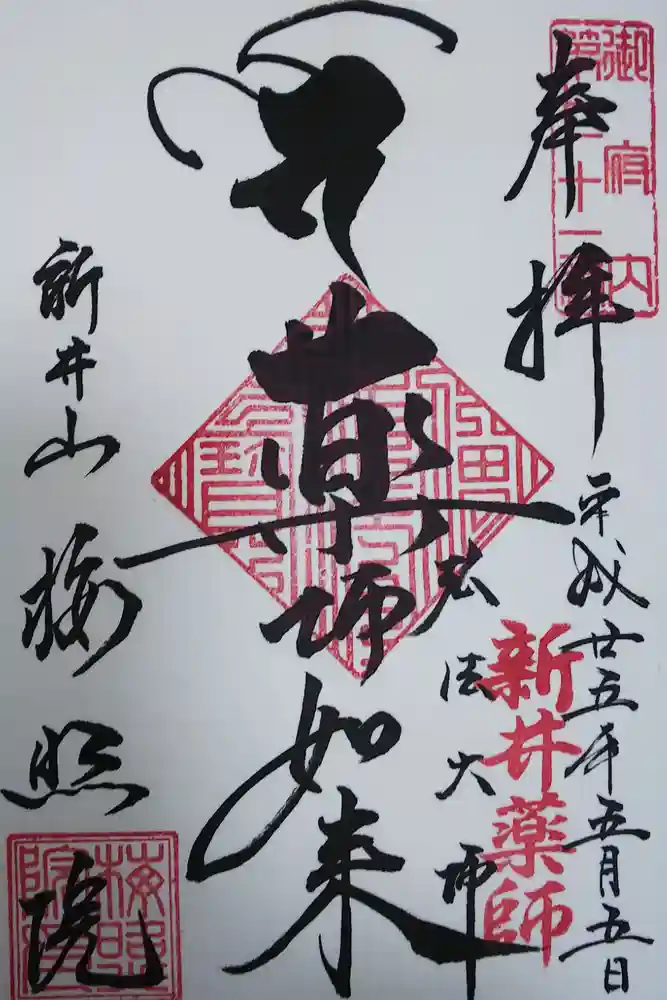 奉拝
御府内
第二十一番
平成廿五年五月五日
新井薬師
弘法大師
薬師如来
新井山
梅照院
梅照院